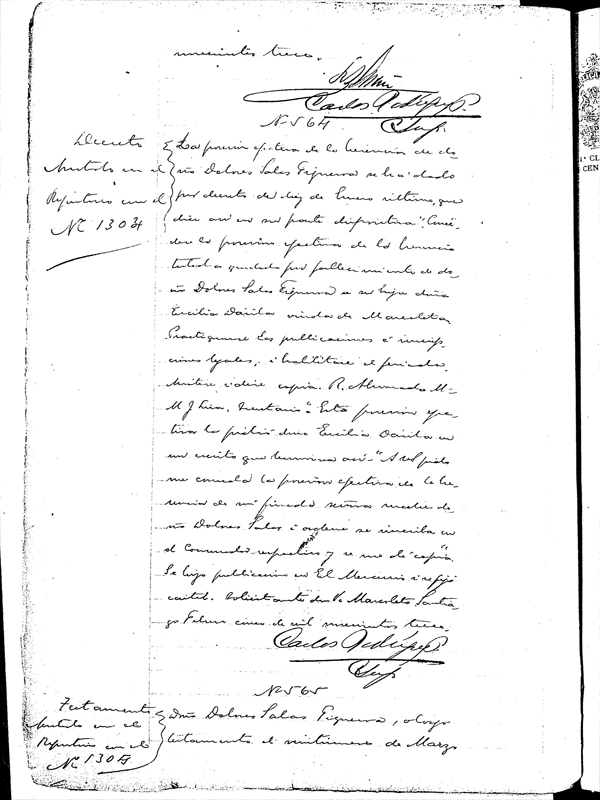 novecientos trece.
Carlos Rodríguez P.
Sup.
Nº 564
Decreto
Anotado en el
Repertorio con el
Nº 1304
La posesion efectiva de la herencia de do-
ña Dolores Salas Figueroa se ha dado
por decreto de diez de Enero último, que
dice así en su parte dispositiva: "Concé-
dese la posesion efectiva de la herencia
testada quedada por fallecimiento de do-
ña Dolores Salas Figueroa a su hija doña
Ercilia Dávila viuda de Marcoleta
Practíquense las publicaciones e inscrip-
ciones legales, i habilitase el feriado.
Anótese i dése copia. R. Ahumada M.-
M J Lira. Secretario". Esta posesion efec-
tiva la pidió doña Ercilia Dávila en
un escrito que termina así: "A US pido
me conceda la posesion efectiva de la he-
rencia de mi finada señora madre do-
ña Dolores Salas i ordene se inscriba en
el Conservador respectivo y se me dé copia".
Se hizo publicacion en El Mercurio i se fijó
cartel. Solicitante don V. Marcoleta Santia-
go Febrero cinco de mil novecientos trece.
Carlos Rodríguez P.
Sup
Nº 565
Testamento
Anotado en el
Repertorio con el
Nº 1305
Doña Dolores Salas Figueroa, otorgó
testamento el veintinueve de Marzo
1ª CL
CEN